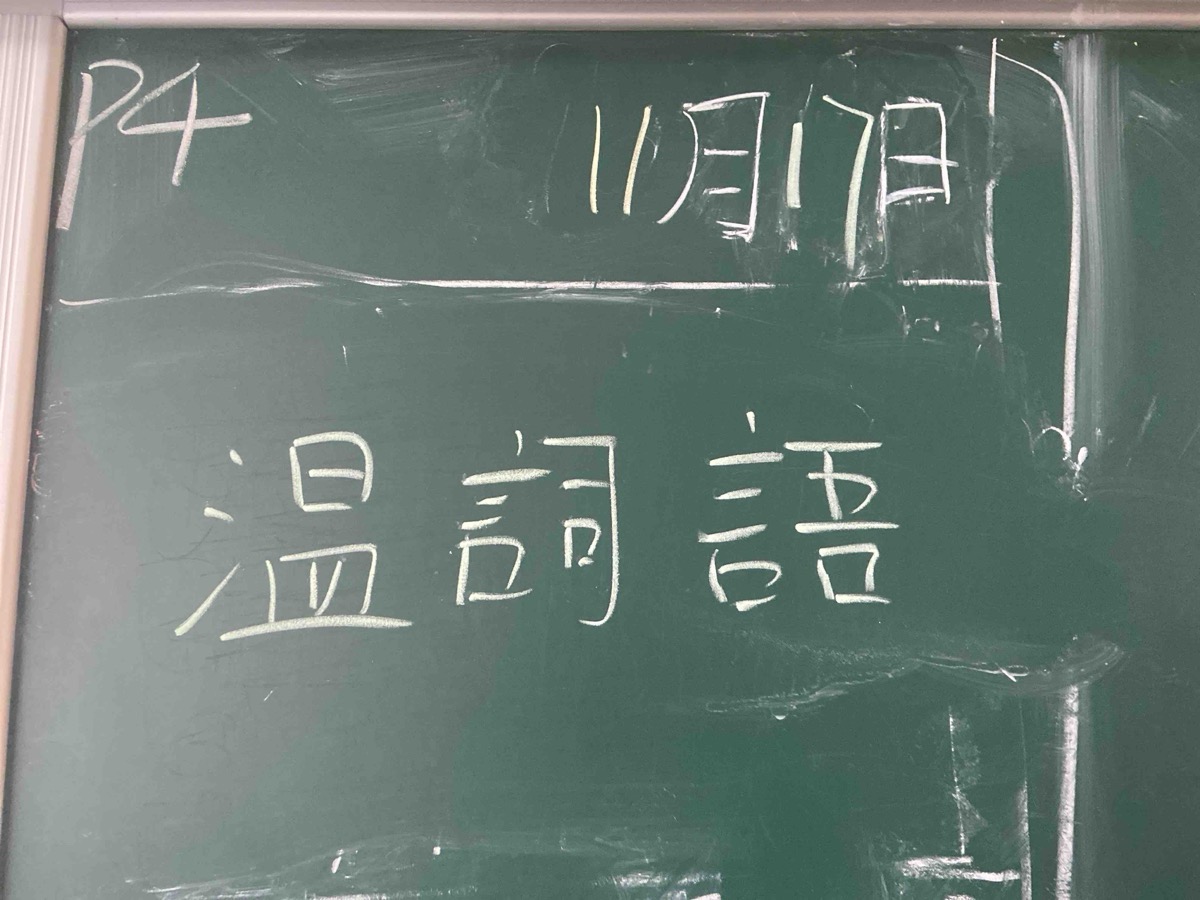 P4 11月17日
温詞語